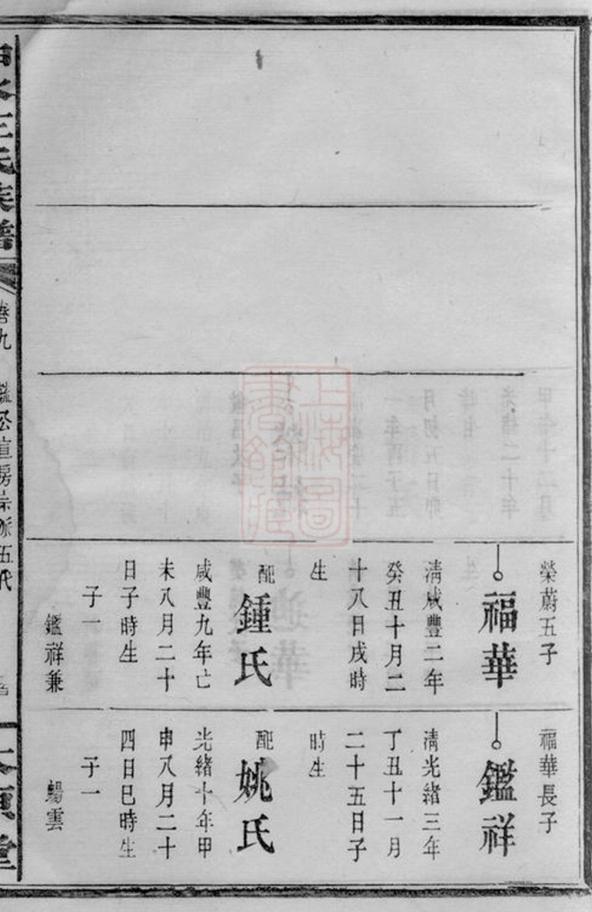 榮蔚五子
福華
清咸豐二年
癸丑十月二
十八日戌時
生
配
鍾氏
咸豐九年己
未八月二十
日子時生
子一
鑑祥兼
福華長子
鑑祥
清光緒三年
丁丑十一月
二十五日子
時生
配
姚氏
光緒十年甲
申八月二十
四日巳時生
子一
雲
王氏族譜
卷九
堂